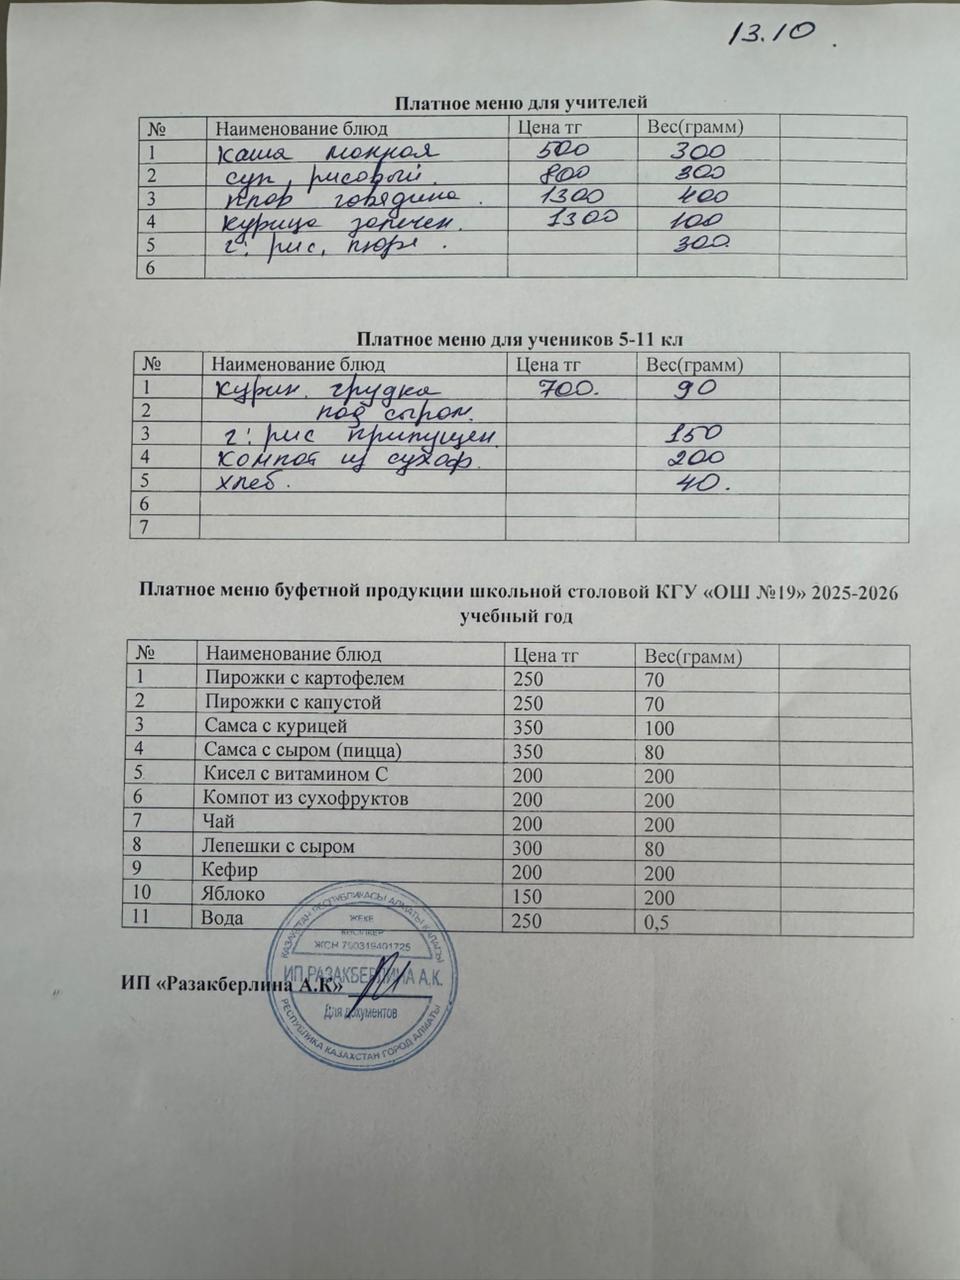 13.10.
Платное меню для учителей
№ Наименование блюд Цена тг Вес(грамм)
1 каша 500 300
2 суп рисовый. 800 300
3 плов говядина. 1300 400
4 курица запечен. 1300 100
5 г: рис, пюре. 300
6
Платное меню для учеников 5-11 кл
№ Наименование блюд Цена тг Вес(грамм)
1 курин. грудка 700. 90
2 под сыром.
3 г: рис припущен. 150
4 компот из сухоф. 200
5 хлеб. 40.
6
7
Платное меню буфетной продукции школьной столовой КГУ «ОШ №19» 2025-2026
учебный год
№ Наименование блюд Цена тг Вес(грамм)
1 Пирожки с картофелем 250 70
2 Пирожки с капустой 250 70
3 Самса с курицей 350 100
4 Самса с сыром (пицца) 350 80
5 Кисел с витамином С 200 200
6 Компот из сухофруктов 200 200
7 Чай 200 200
8 Лепешки с сыром 300 80
9 Кефир 200 200
10 Яблоко 150 200
11 Вода 250 0,5
ИП «Разакберлина А.К»
ҚАЗАҚСТАН РЕСПУБЛИКАСЫ АЛМАТЫ ҚАЛАСЫ
ЖЕКЕ
КӘСІПКЕР
ЖСН 760319401725
ИП РАЗАКБЕРЛИНА А.К.
Для документов
РЕСПУБЛИКА КАЗАХСТАН ГОРОД АЛМАТЫ